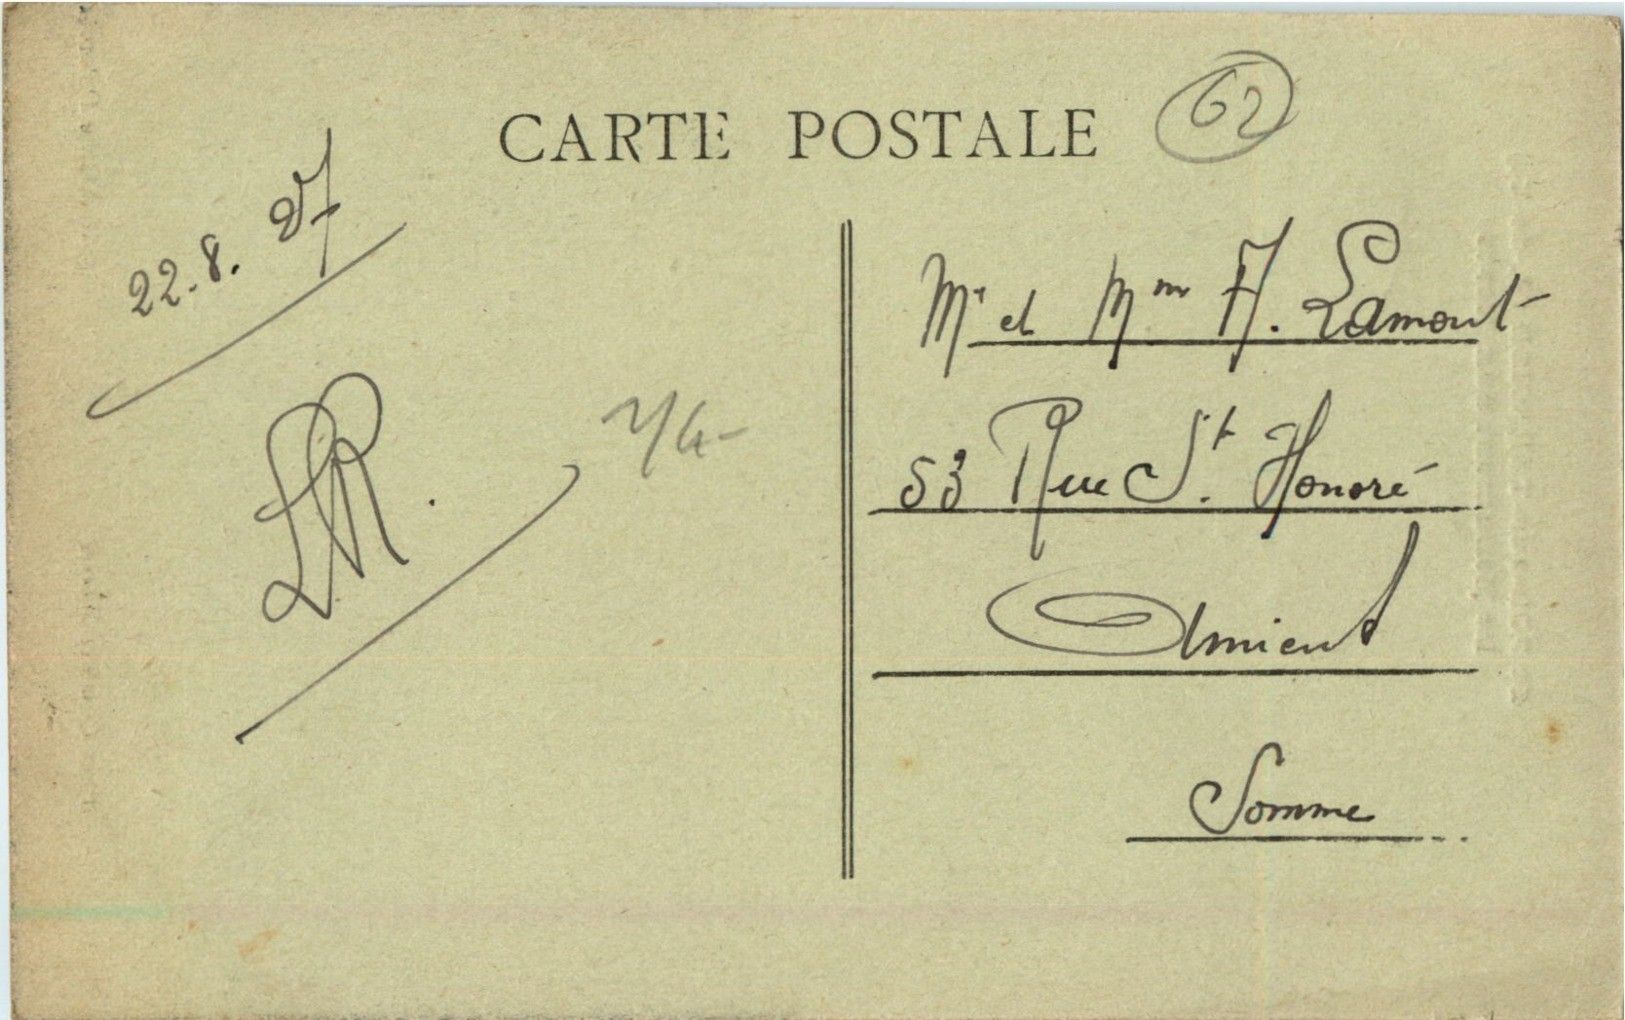 CARTE POSTALE
62
22.8.27
Mr et Mme A. Lamont
53 Rue St. Honoré
Amiens
Somme